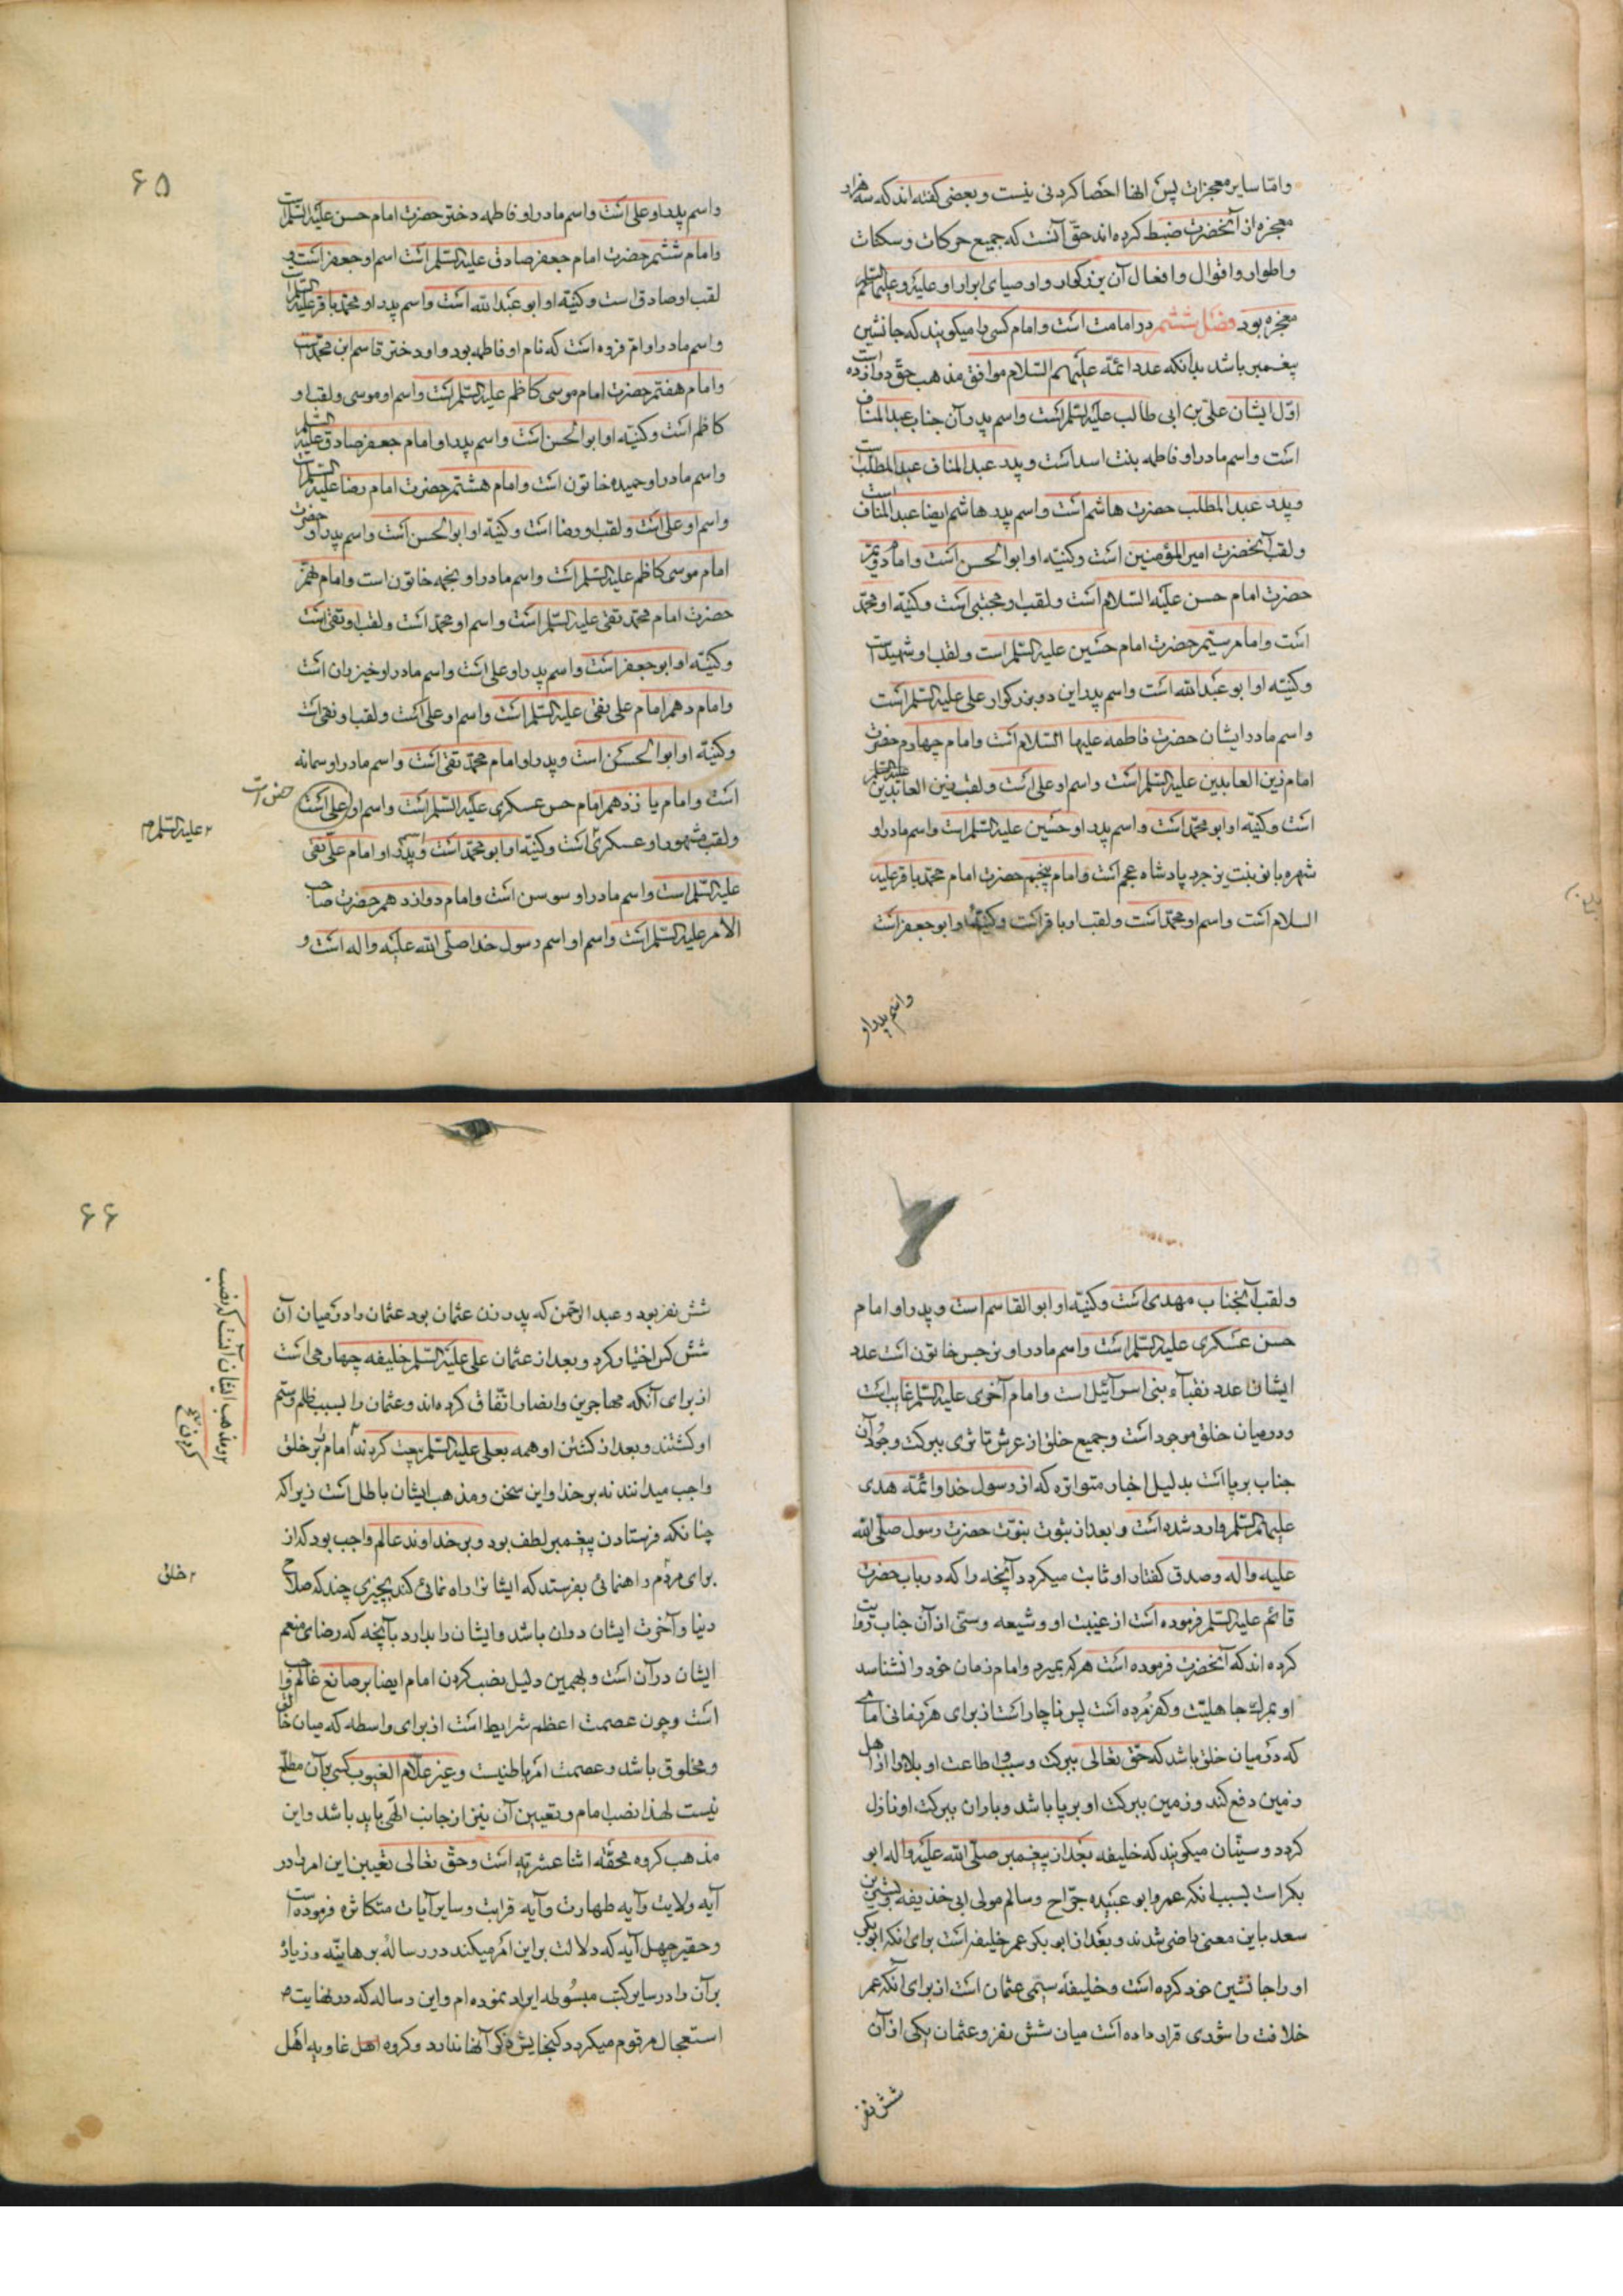 و امّا سایر معجزات پس انها احصا کردنی نیست و بعضی گفته اند که سه هزار
معجزه از آنحضرت ضبط کرده اند حقّ آنست که جمیع حرکات و سکنات
و اطوار و اقوال و افعال آن بزرگوار و اوصیای ابرار او علیه و علیهم السلم
معجزه بود فصل ششم در امامت است و امام کسی را میگویند که جانشین
پیغمبر باشد بدانکه عدد ائمّه علیهم السّلام موافق مذهب حقّ دوازده است
اوّل ایشان علیّ بن ابی طالب علیه السّلم است و اسم پدر آن جناب عبدالمناف
است و اسم مادر او فاطمه بنت اسد است و پدر عبدالمناف عبدالمطلّب است
و پدر عبدالمطلب حضرت هاشم است و اسم پدر هاشم ایضا عبدالمناف است
و لقب آنحضرت امیرالمؤمنین است و کنیّه او ابوالحسن است و امام دویّم
حضرت امام حسن علیه السّلام است و لقب او مجتبی است و کنیّه او محمّد
است و امام سیّم حضرت امام حسین علیه السّلم است و لقب او شهید است
و کنیّه او ابو عبدالله است و اسم پدر این دو بزرگوار علی علیه السّلم است
و اسم مادر ایشان حضرت فاطمه علیها السّلام است و امام چهارم حضرت
امام زین العابدین علیه السّلم است و اسم او علی است و لقب زین العابدین علیه السلم
است و کنیّه او ابو محمّد است و اسم پدر او حسین علیه السّلم است و اسم مادر او
شهره بانو بنت یزجرد پادشاه عجم است و امام پنجم حضرت امام محمّد باقر علیه
السلام است و اسم او محمّد است و لقب او باقر است و کنیّه او ابو جعفر است
و اسم پدر او
۶۵
و اسم پدر او علی است و اسم مادر او فاطمه دختر حضرت امام حسن علیه السّلم است
و امام ششم حضرت امام جعفر صادق علیه السّلم است اسم او جعفر است و
لقب او صادق است و کنیّه او ابو عبدالله است و اسم پدر او محمّد باقر علیه السلم است
و اسم مادر او امّ فروه است که نام او فاطمه بود و او دختر قاسم ابن محمّد است
و امام هفتم حضرت امام موسی کاظم علیه السّلم است و اسم او موسی و لقب او
کاظم است و کنیّه او ابوالحسن است و اسم پدر او امام جعفر صادق علیه السلم
و اسم مادر او حمیده خاتون است و امام هشتم حضرت امام رضا علیه السلم است
و اسم او علی است و لقب او رضا است و کنیّه او ابوالحسن است و اسم پدر او حضرت
امام موسی کاظم علیه السّلم است و اسم مادر او نجمه خاتون است و امام نهم
حضرت امام محمّد تقی علیه السّلم است و اسم او محمّد است و لقب او تقی است
و کنیّه او ابو جعفر است و اسم پدر او علی است و اسم مادر او خیزران است
و امام دهم امام علی نقی علیه السّلم است و اسم او علی است و لقب او نقی است
و کنیّه او ابوالحسن است و پدر او امام محمّد تقی است و اسم مادر او سمانه
است و امام یازدهم امام حسن عسکری علیه السّلم است و اسم او علی است
حسن است
و لقب مشهور او عسکری است و کنیّه او ابو محمّد است و اسم پدر او امام علی نقی
علیه السّلم م
علیه السّلم است و اسم مادر او سوسن است و امام دوازدهم حضرت صاحب
الامر علیه السّلم است و اسم او اسم رسول خدا صلّی الله علیه و اله است و
و لقب آنجناب مهدی است و کنیّه او ابوالقاسم است و پدر او امام
حسن عسکری علیه السّلم است و اسم مادر او نرجس خاتون است عدد
ایشان عدد نقبآء بنی اسرآئیل است و امام آخری علیه السّلم غایب است
و در میان خلق موجود است و جمیع خلق از عرش تا ثری ببرکت وجود آن
جناب برپا است بدلیل اخبار متواتره که از رسول خدا و ائمّه هدی
علیهم السّلم وارد شده است و بعد از ثبوت نبوّت حضرت رسول صلّی الله
علیه و اله و صدق گفتار او ثابت میگردد آنچه را که در باب حضرت
قائم علیه السّلم فرموده است از غیبت او و شیعه و سنّی از آن جناب روایت
کرده اند که آنحضرت فرموده است هر که بمیرد و امام زمان خود را نشناسد
او بمرگ جاهلیّت و کفر مُرده است پس ناچار است از برای هر زمانی امامی
که در میان خلق باشد که حقّ تعالی ببرکت و سبب اطاعت او بلا را از اهل
زمین دفع کند و زمین ببرکت او برپا باشد و باران ببرکت او نازل
گردد و سنّیان میگویند که خلیفه بعد از پیغمبر صلّی الله علیه و اله ابو
بکر است بسبب انکه عمر و ابو عبیده جرّاح و سالم مولی ابی حذیفه و بشیر بن
سعد باین معنی راضی شدند و بعد از ابو بکر عمر خلیفه است برای انکه ابو بکر
او را جانشین خود کرده است و خلیفهٔ سیّمی عثمان است از برای آنکه عمر
خلافت را شوری قرار داده است میان شش نفر و عثمان یکی از آن
شش نفر
۶۶
شش نفر بود و عبد الرّحمن که پدر زن عثمان بود عثمان را در میان آن
شش کس اختیار کرد و بعد از عثمان علی علیه السّلم خلیفه چهارمی است
از برای آنکه مهاجرین و انصار اتّفاق کرده اند و عثمان را بسبب ظلم و ستم
او کشتند و بعد از کشتن او همه بعلی علیه السّلم بیعت کردند امام بر خلق
واجب میدانند نه بر خدا و این سخن و مذهب ایشان باطل است زیرا که
چنانکه فرستادن پیغمبر لطف بود و بر خداوند عالم واجب بود که از
برای مردم راهنمائی بفرستد که ایشانرا راه نمائی کند بچیزی چند که صلاح
خلق
دنیا و آخرت ایشان در ان باشد و ایشان را بدارد بآنچه که رضای منعم
ایشان در آن است و بهمین دلیل نصب کردن امام ایضا بر صانع عالم واجب
است و چون عصمت اعظم شرایط است از برای واسطه که میان خالق
و مخلوق باشد و عصمت امر باطنیست و غیر علّام الغیوب کسی بر آن مطلع
نیست لهذا نصب امام و تعیین آن نیز از جانب الهی باید باشد و این
مذهب گروه محقّه اثنا عشریّه است و حقّ تعالی تعیین این امر را در
آیه ولایت و آیه طهارت و آیه قرابت و سایر آیات متکاثره فرموده است
و حقیر چهل آیه که دلالت بر این امر میکند در رسالهٔ برهانیّه و زیاده
بر آن را در سایر کتب مبسُوطه ایراد نموده ام و این رساله که در نهایت
استعجال مرقوم میگردد گنجایش ذکر آنها ندارد و گروه اهل غاویه اهل
و مذهب ایشان آنست که نصب
کردن